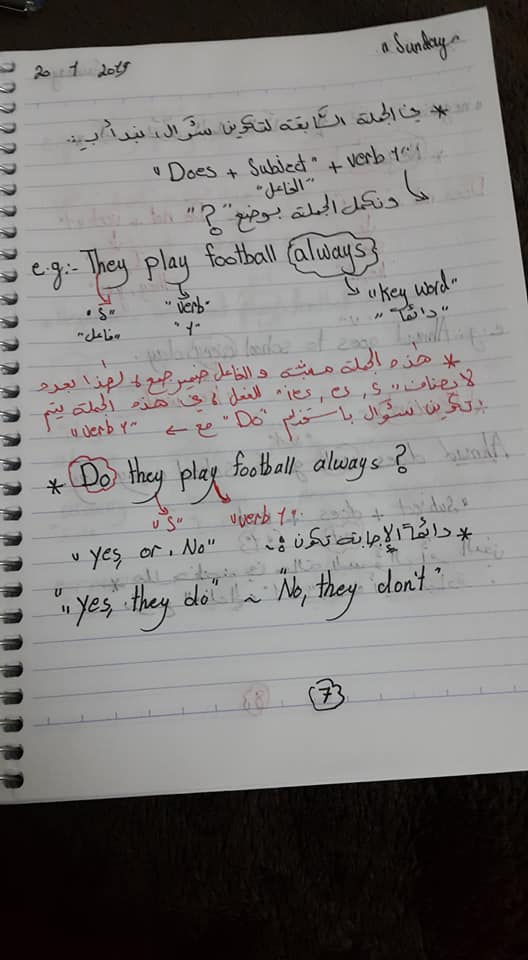 20 1 2019 "Sunday"
* في الجملة السابقة لتكوين سؤال، نبدأ بـ:
"Does + Subject" + verb 1":
"الفاعل"
ونكمل الجملة بوضع "?"
e.g:- They play football always
"S" "verb" "Key word"
"فاعل" "1" "دائماً"
* هذه الجملة مثبتة والفاعل ضمير جمع لهذا بعده
لا يضاف "ies, es, s" للفعل في هذه الجملة يتم
تكوين سؤال باستخدام "Do" مع ← "verb 1"
* Do they play football always ?
"S" "verb 1".
* دائماً الإجابة تكون :
"yes, or, No"
"yes, they do" ~ "No, they don't"
7